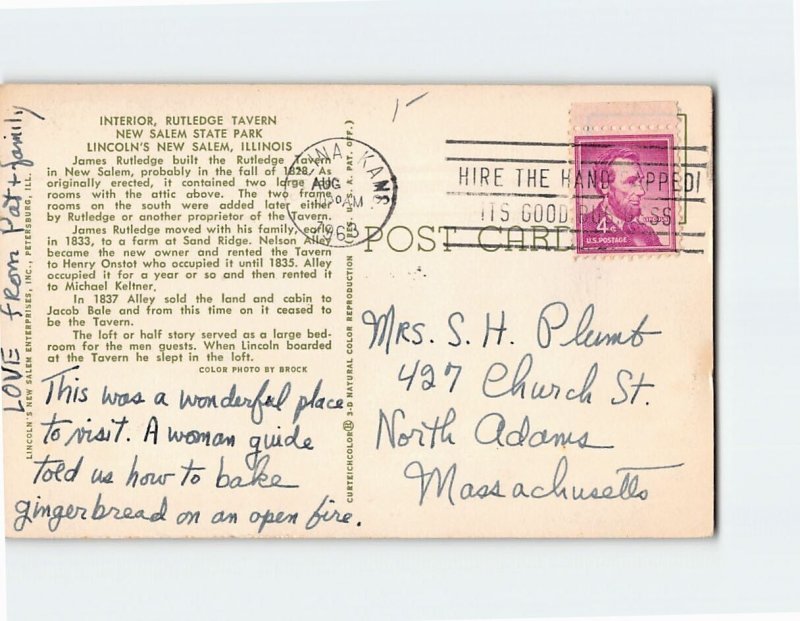 INTERIOR, RUTLEDGE TAVERN
NEW SALEM STATE PARK
LINCOLN'S NEW SALEM, ILLINOIS
James Rutledge built the Rutledge Tavern
in New Salem, probably in the fall of 1828. As
originally erected, it contained two large
rooms with the attic above. The two frame
rooms on the south were added later either
by Rutledge or another proprietor of the Tavern.
James Rutledge moved with his family, early
in 1833, to a farm at Sand Ridge. Nelson Alley
became the new owner and rented the Tavern
to Henry Onstot who occupied it until 1835. Alley
occupied it for a year or so and then rented it
to Michael Keltner.
In 1837 Alley sold the land and cabin to
Jacob Bale and from this time on it ceased to
be the Tavern.
The loft or half story served as a large bed-
room for the men guests. When Lincoln boarded
at the Tavern he slept in the loft.
COLOR PHOTO BY BROCK
This was a wonderful place
to visit. A woman guide
told us how to bake
gingerbread on an open fire.
LOVE from Pat + family
LINCOLN'S NEW SALEM ENTERPRISES, INC., PETERSBURG, ILL.
CURTEICHCOLOR® 3-D NATURAL COLOR REPRODUCTION (REG. U.S.A. PAT. OFF.)
KANS
AUG
AM
1963
HIRE THE HAND PPED!
ITS GOOD BUS SS
4¢
U.S. POSTAGE
POST CARD
Mrs. S. H. Plumb
427 Church St.
North Adams
Massachusetts